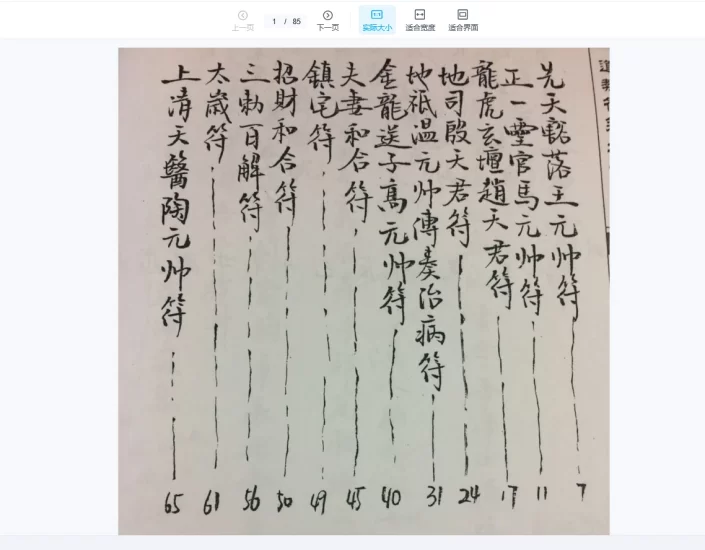 上一页
1 / 85
下一页
实际大小
适合宽度
适合界面
先天豁落王元帅符 7
正一靈官馬元帅符 11
龍虎玄壇趙天君符 17
地司殷天君符 24
地祇温元帅傳奏治病符 31
金龍送子高元帅符 40
夫妻和合符 45
鎮宅符 49
招財和合符 50
三勅百解符 56
太歲符 61
上清天醫陶元帅符 65